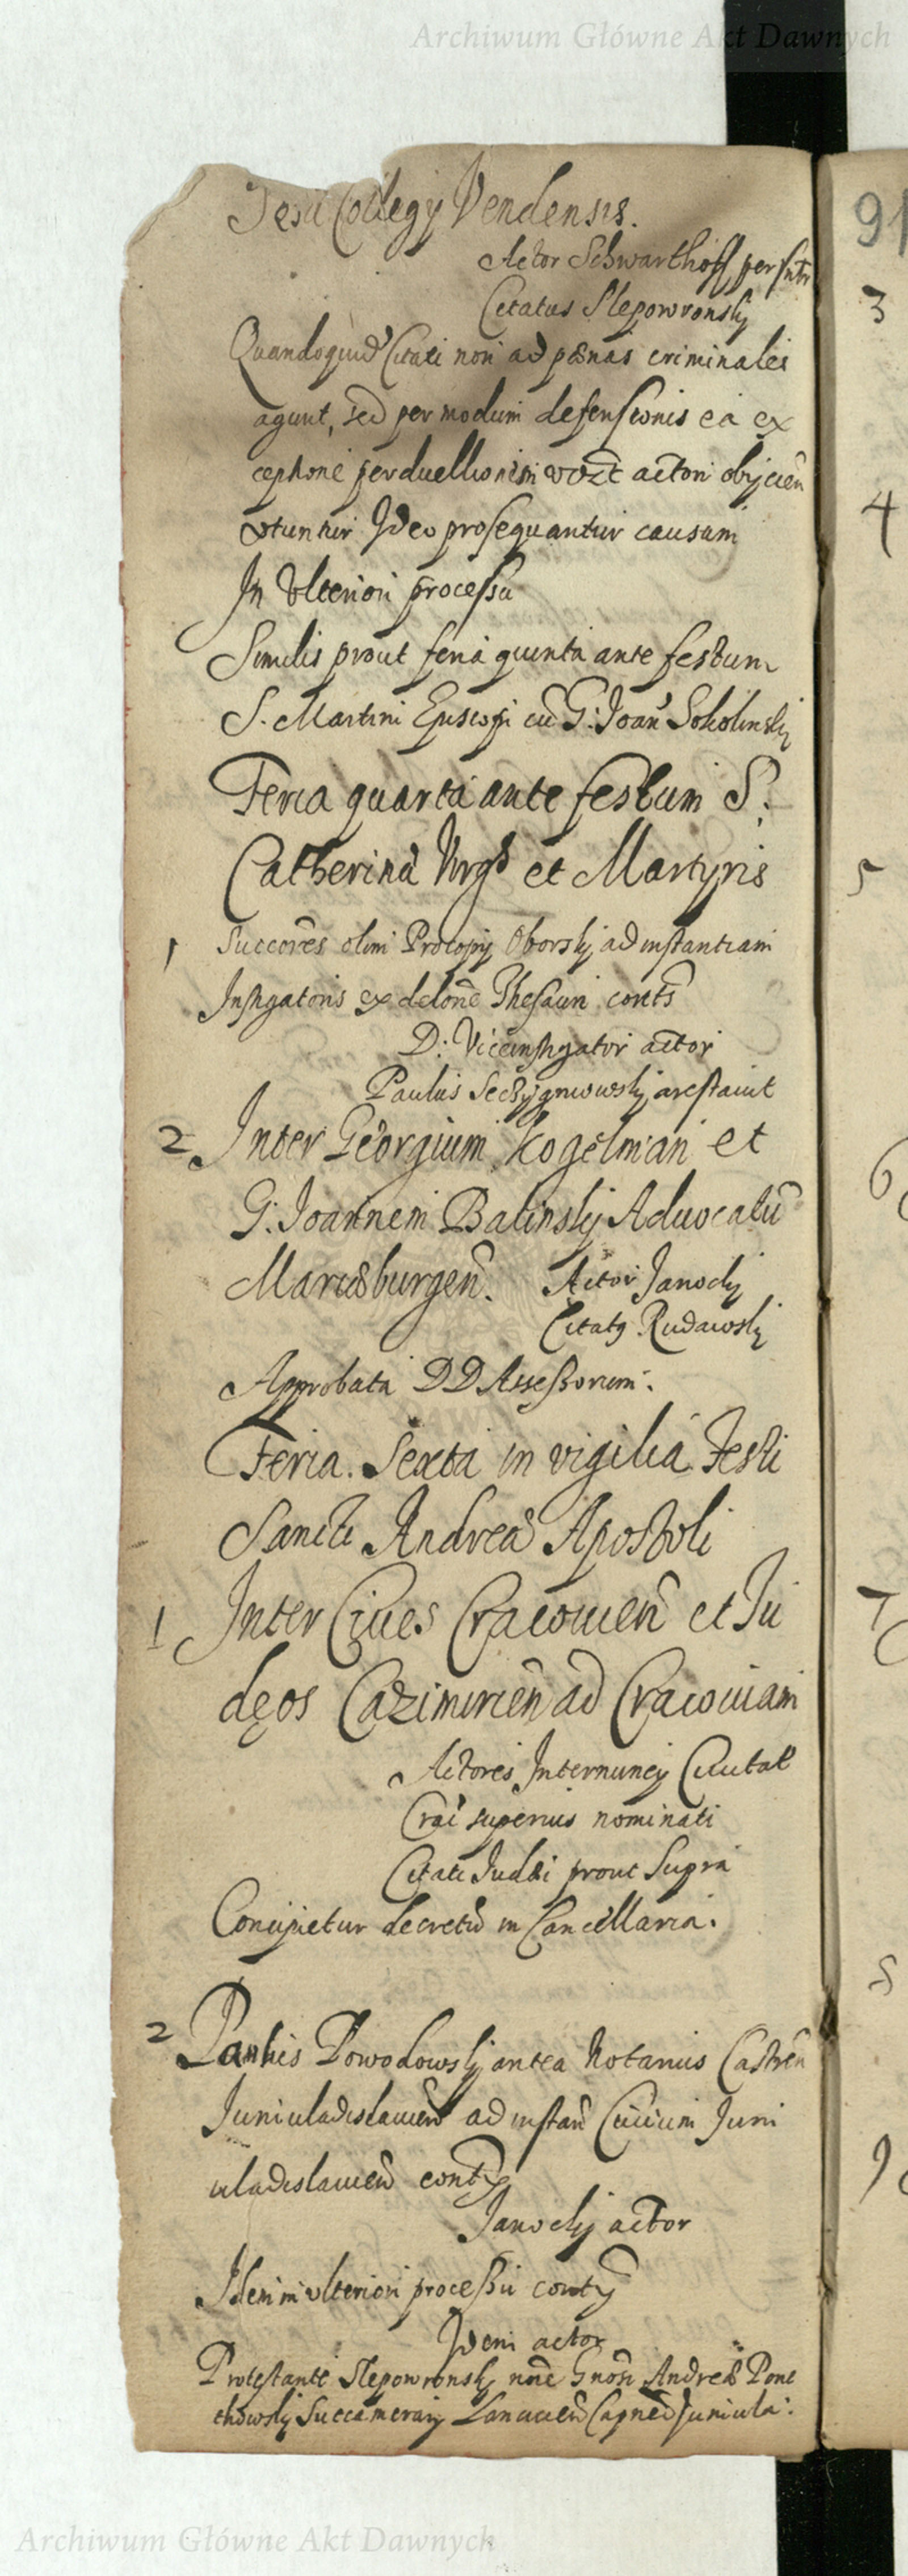 Archiwum Główne Akt Dawnych
Jesu Collegij Vendensis.
Actor Schwarthoff per
Citatus Slepowronskj
91
3
Quandoquid Citati non ad pœnas criminales
agunt, sed per modum defensionis ea ex
ceptione perduellionem actori obijcien
utuntur Ideo prosequantur causam
4
In Ulteriori processu
Similis prout feria quinta ante festum
S. Martini Episcopi cu G: Joan Sokolinskj
Feria quarta ante festum S.
Catherinæ Virgs et Martyris
5
1 Succores olim Procopij Oborskj ad instantiam
Instigatoris ex delone Thesauri conts
D: Viceinstigator actor
Paulus arestavit
2 Inter Georgium Kogelman et
G: Joannem Balinskj Advocatu
6
Mariæburgen. Actor Janockj
Citatq Rudawskj
Approbata DD Assessorum.
Feria Sexta in vigilia Festi
Sancti Andreæ Apostoli
1 Inter Cives Cracovien et Ju
7
dęos Cazimirien ad Cracoviam
Actores Internuncij Civitat
Craē superius nominati
Citati Judæi prout Supra
Concipietur decretu in Cancellaria.
8
2 Paulus Powodowskj antea Notarius Castren
Juniuladislauien ad instan Ciuium Juni
uladislauien cont
9
Janockj actor
Idem in ulteriori processu
Idem actor
Protestante Slepowronskj noē Gnosi Andreæ Pone
thowskj Succamerarij Lancicien Capnei Juniula:
Archiwum Główne Akt Dawnych